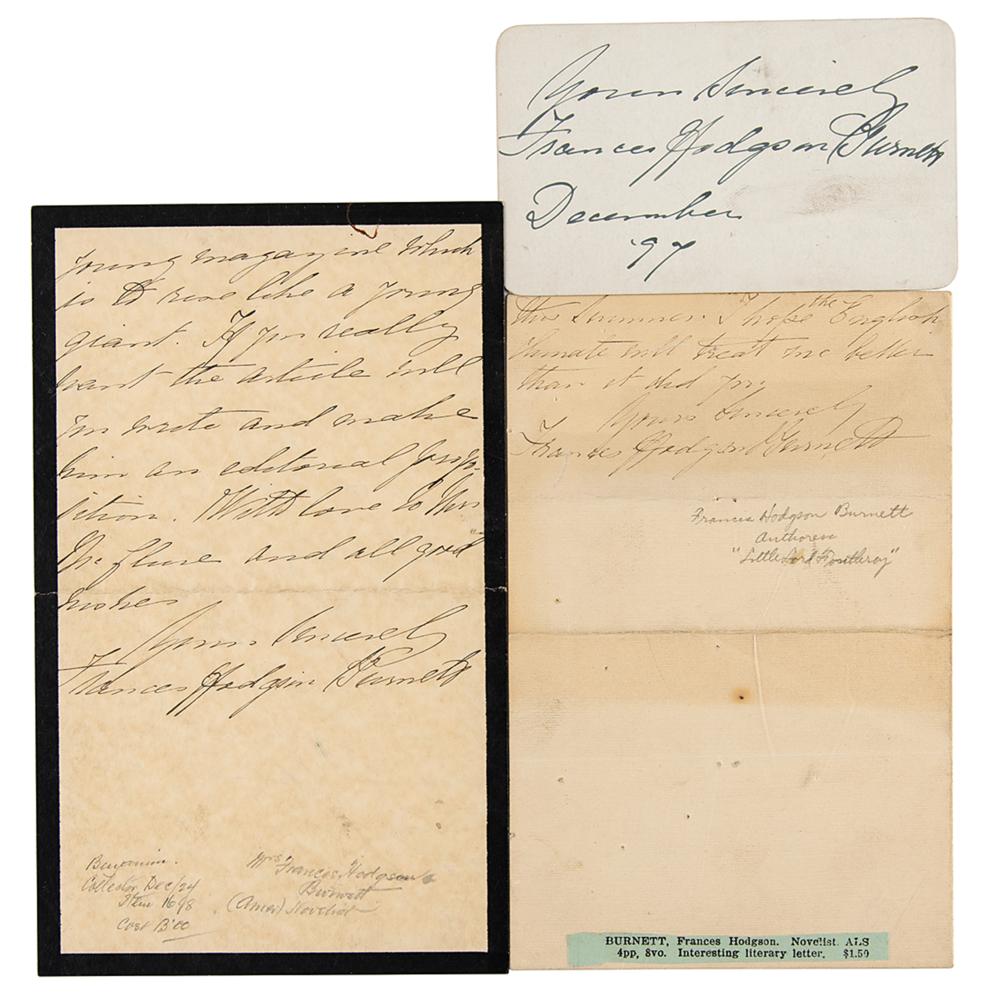 Yours Sincerely
Frances Hodgson Burnett
December
'97
young magazine which
is to rise like a young
giant. If you really
want the article will
you write and make
him an editorial propo-
sition. With love to Mrs
McClure and all good
wishes
Yours Sincerely
Frances Hodgson Burnett
Benjamin.
Collector Dec/24
Item
Cost
Mrs Frances Hodgson
Burnett
(Amer) Novelist
this Summer. I hope the English
climate will treat me better
than it did you
Yours Sincerely
Frances Hodgson Burnett
Frances Hodgson Burnett
Authoress
"Little Lord Fauntleroy"
BURNETT, Frances Hodgson. Novelist. ALS
4pp, 8vo. Interesting literary letter. $1.50